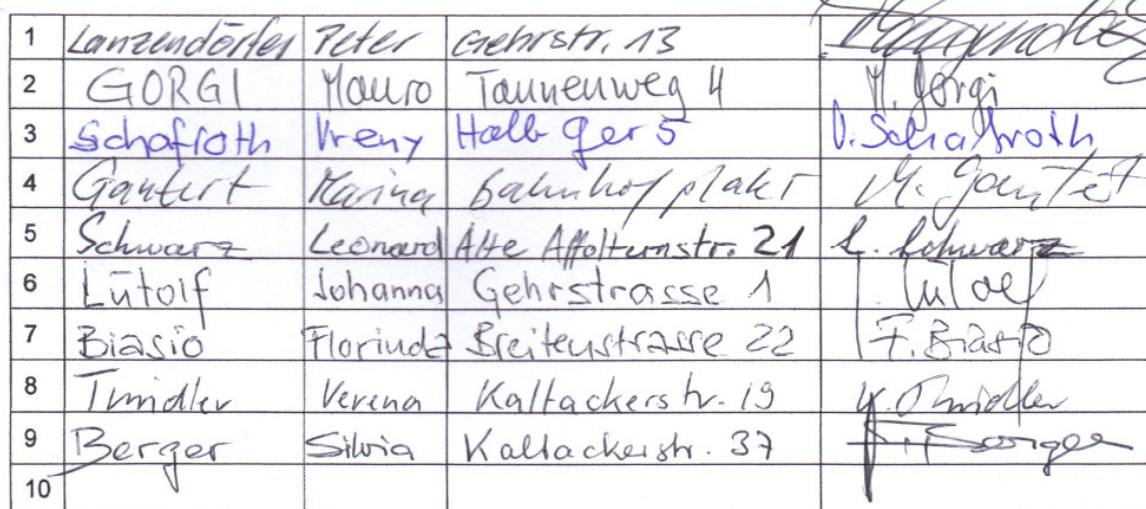 1 Lanzendörfer Peter Gehrstr. 13
2 GORGI Mauro Tannenweg 4 M. Gorgi
3 Schafroth Vreny Halb Ger 5 V. Schafroth
4 Gautert Marina Bahnhofplakt M.
5 Schwarz Leonard Alte Affolternstr. 21 L. Schwarz
6 Lütolf Johanna Gehrstrasse 1
7 Biasio Florinda Breitenstrasse 22 F. Biasio
8 Verena Kaltackerstr. 19
9 Berger Silvia Kaltackerstr. 37 Berger
10